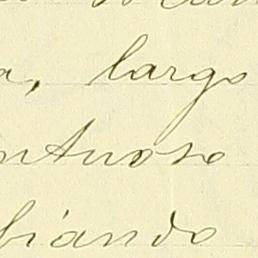 a, largo
ntuoso
biando